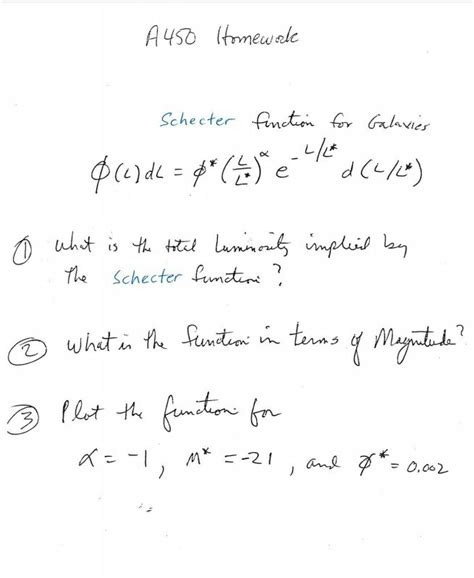 A450 Homework
Schecter function for Galaxies
ϕ(L)dL = ϕ* (L/L*)^α e^-L/L* d(L/L*)
① What is the total Luminosity implied by
the Schecter function?
② What is the function in terms of Magnitude?
③ Plot the function for
α = -1, M* = -21, and ϕ* = 0.002